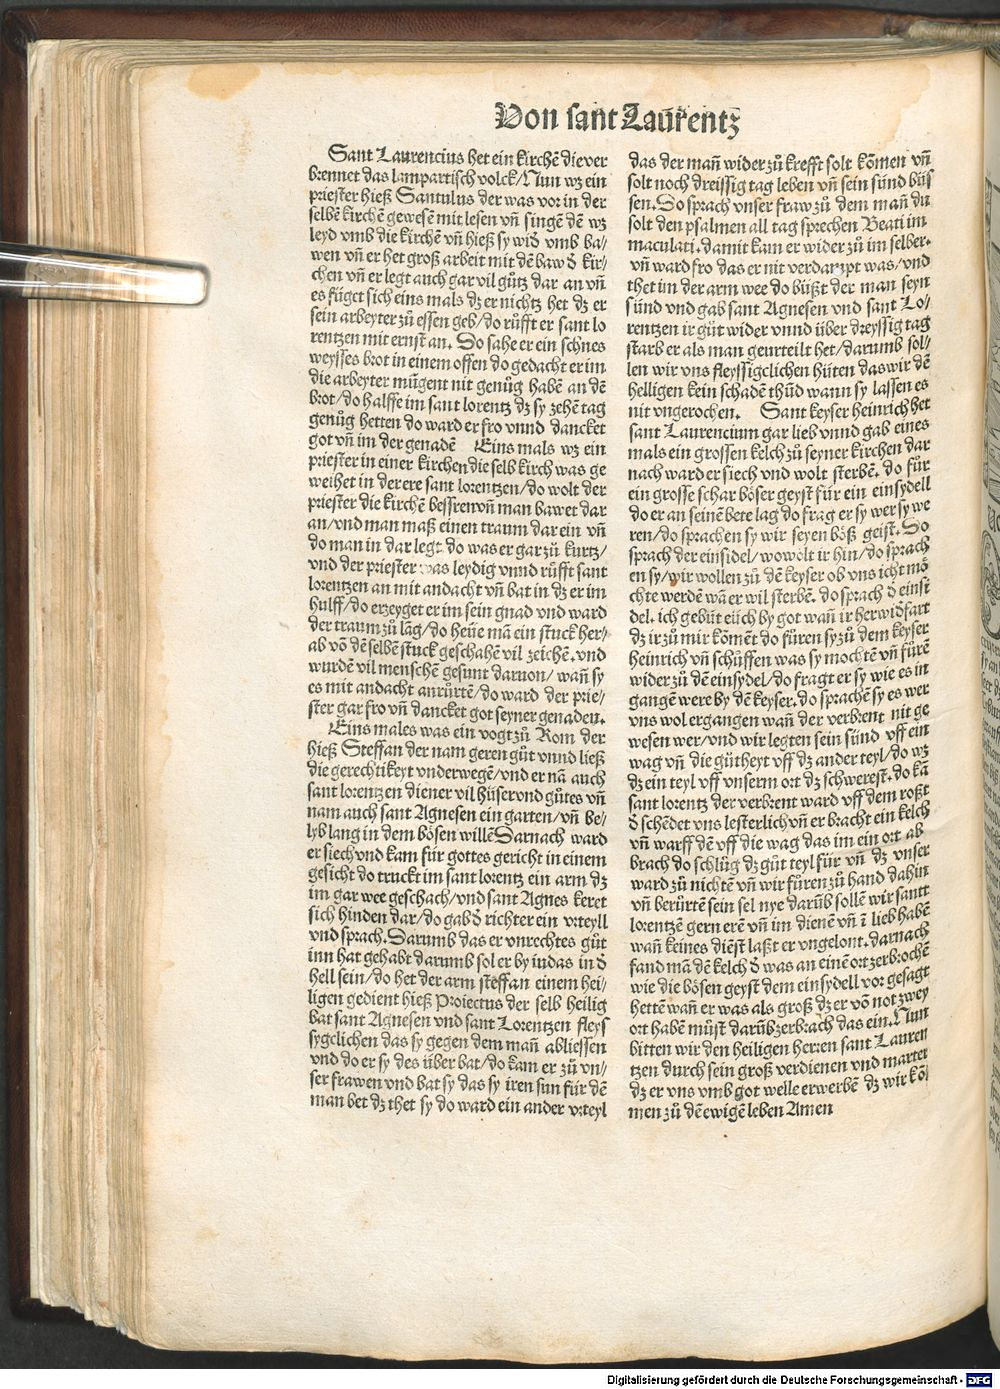 Von sant Laurentz
Sant Laurencius het ein kirchē die ver
brennet das lampartisch volck/Nun wz ein
priester hieß Santulus der was vor in der
selbē kirchē gewesē mit lesen vn̄ singē dē wz
leyd vmb die kirchē vn̄ hieß sy wid̓ vmb ba⸗
wen vn̄ er het groß arbeit mit dē baw d̓ kir⸗
chen vn̄ er legt auch gar vil gůtz dar an vn̄
es füget sich eins mals dz er nichtz het dz er
sein arbeyter zů essen geb/do růfft er sant lo
rentzen mit ernst an. Do sahe er ein schnes
weysses brot in einem offen do gedacht er im
die arbeyter mügent nit genůg habē an dē
brot/do halffe im sant lorentz dz sy zehē tag
genůg hetten do ward er fro vnnd dancket
got vn̄ im der genadē Eins mals wz ein
priester in einer kirchen die selb kirch was ge
weihet in der ere sant lorentzen/do wolt der
priester die kirchē bessren vn̄ man bawet dar
an/vnd man maß einen traum dar ein vn̄
do man in dar legt do was er gar zů kurtz/
vnd der priester was leydig vnnd růfft sant
lorentzen an mit andacht vn̄ bat in dz er im
hulff/do erzeyget er im sein gnad vnd ward
der traum zů lāg/do heüe mā ein stuck her⸗
ab vō dē selbē stuck geschahē vil zeichē.vnd
wurdē vil menschē gesunt daruon/ wan̄ sy
es mit andacht anrůrtē/do ward der prie⸗
ster gar fro vn̄ dancket got seyner genaden.
Eins males was ein vogt zů Rom der
hieß Steffan der nam geren gůt vnnd ließ
die gerechtikeyt vnderwegē/vnd er nā auch
sant lorentzen diener vil hüser vnd gůtes vn̄
nam auch sant Agnesen ein garten/vn̄ be⸗
lyb lang in dem bösen willē Darnach ward
er siech vnd kam für gottes gericht in einem
gesicht do truckt im sant lorentz ein arm dz
im gar wee geschach/vnd sant Agnes keret
sich hinden dar/do gab d̓ richter ein vrteyll
vnd sprach. Darumb das er vnrechtes gůt
inn hat gehabt darumb sol er by iudas in d̓
hell sein/do het der arm steffan einem hei⸗
ligen gedient hieß Proiectus der selb heilig
bat sant Agnesen vnd sant Lorentzen fleys
sygclichen das sy gegen dem man̄ abliessen
vnd do er sy des über bat/do kam er zů vn⸗
ser frawen vnd bat sy das sy iren sun für dē
man bet dz thet sy do ward ein ander vrteyl
das der man̄ wider zů krefft solt kōmen vn̄
solt noch dreissig tag leben vn̄ sein sünd büs
sen. Do sprach vnser fraw zů dem man̄ du
solt den psalmen all tag sprechen Beati im
maculati. damit kam er wider zů im selber.
vn̄ ward fro das er nit verdampt was/vnd
thet im der arm wee do büßt der man seyn
sünd vnd gab sant Agnesen vnd sant Lo⸗
rentzen ir gůt wider vnnd über dreyssig tag
starb er als man geurteilt het/darumb sol⸗
len wir vns fleyssigclichen hüten das wir dē
helligen kein schadē thůd wann sy lassen es
nit vngerochen. Sant keyser heinrich het
sant Laurencium gar lieb vnnd gab eines
mals ein grossen kelch zů seyner kirchen dar
nach ward er siech vnd wolt sterbē. do für
ein grosse schar böser geyst für ein einsydell
do er an seinē bete lag do frag er sy wer sy we
ren/do sprachen sy wir seyen böß geist. Do
sprach der einsidel/wo wölt ir hin/do sprach
en sy/wir wollen zů dē keyser ob vns icht mö
chte werdē wā er wil sterbē. do sprach d̓ einsi
del. ich gebüt eüch by got wan̄ ir herwidfart
dz ir zů mir kōmēt do fůren sy zů dem keyser
heinrich vn̄ schůffen was sy mochtē vn̄ fůrē
wider zů dē einsydel/do fragt er sy wie es in
gangē were by dē keyser. do sprachē sy es wer
vns wol ergangen wan̄ der verbrent nit ge
wesen wer/vnd wir legten sein sünd vff ein
wag vn̄ die gůtheyt vff dz ander teyl/do wz
dz ein teyl vff vnserm ort dz schwerest. do kā
sant lorentz der verbrent ward vff dem roßt
d̓ schēdet vns lesterlich vn̄ er bracht ein kelch
vn̄ warff dē vff die wag das im ein ort ab
brach do schlůg dz gůt teyl für vn̄ dz vnser
ward zů nichtē vn̄ wir fůren zů hand dahin
vn̄ berürtē sein sel nye darūb sollē wir santt
lorentzē gern erē vn̄ im dienē vn̄ ī lieb habē
wan̄ keines diēst laßt er vngelont. darnach
fand mā dē kelch d̓ was an einē ort zerbrochē
wie die bösen geyst dem einsydell vor gesagt
hettē wan̄ er was als groß dz er vō not zwey
ort habē můst darūb zerbrach das ein. Nun
bitten wir den heiligen herren sant Lauren
tzen durch sein groß verdienen vnd marter
dz er vns vmb got welle erwerbē dz wir kō⸗
men zů dē ewigē leben Amen
Digitalisierung gefördert durch die Deutsche Forschungsgemeinschaft - DFG